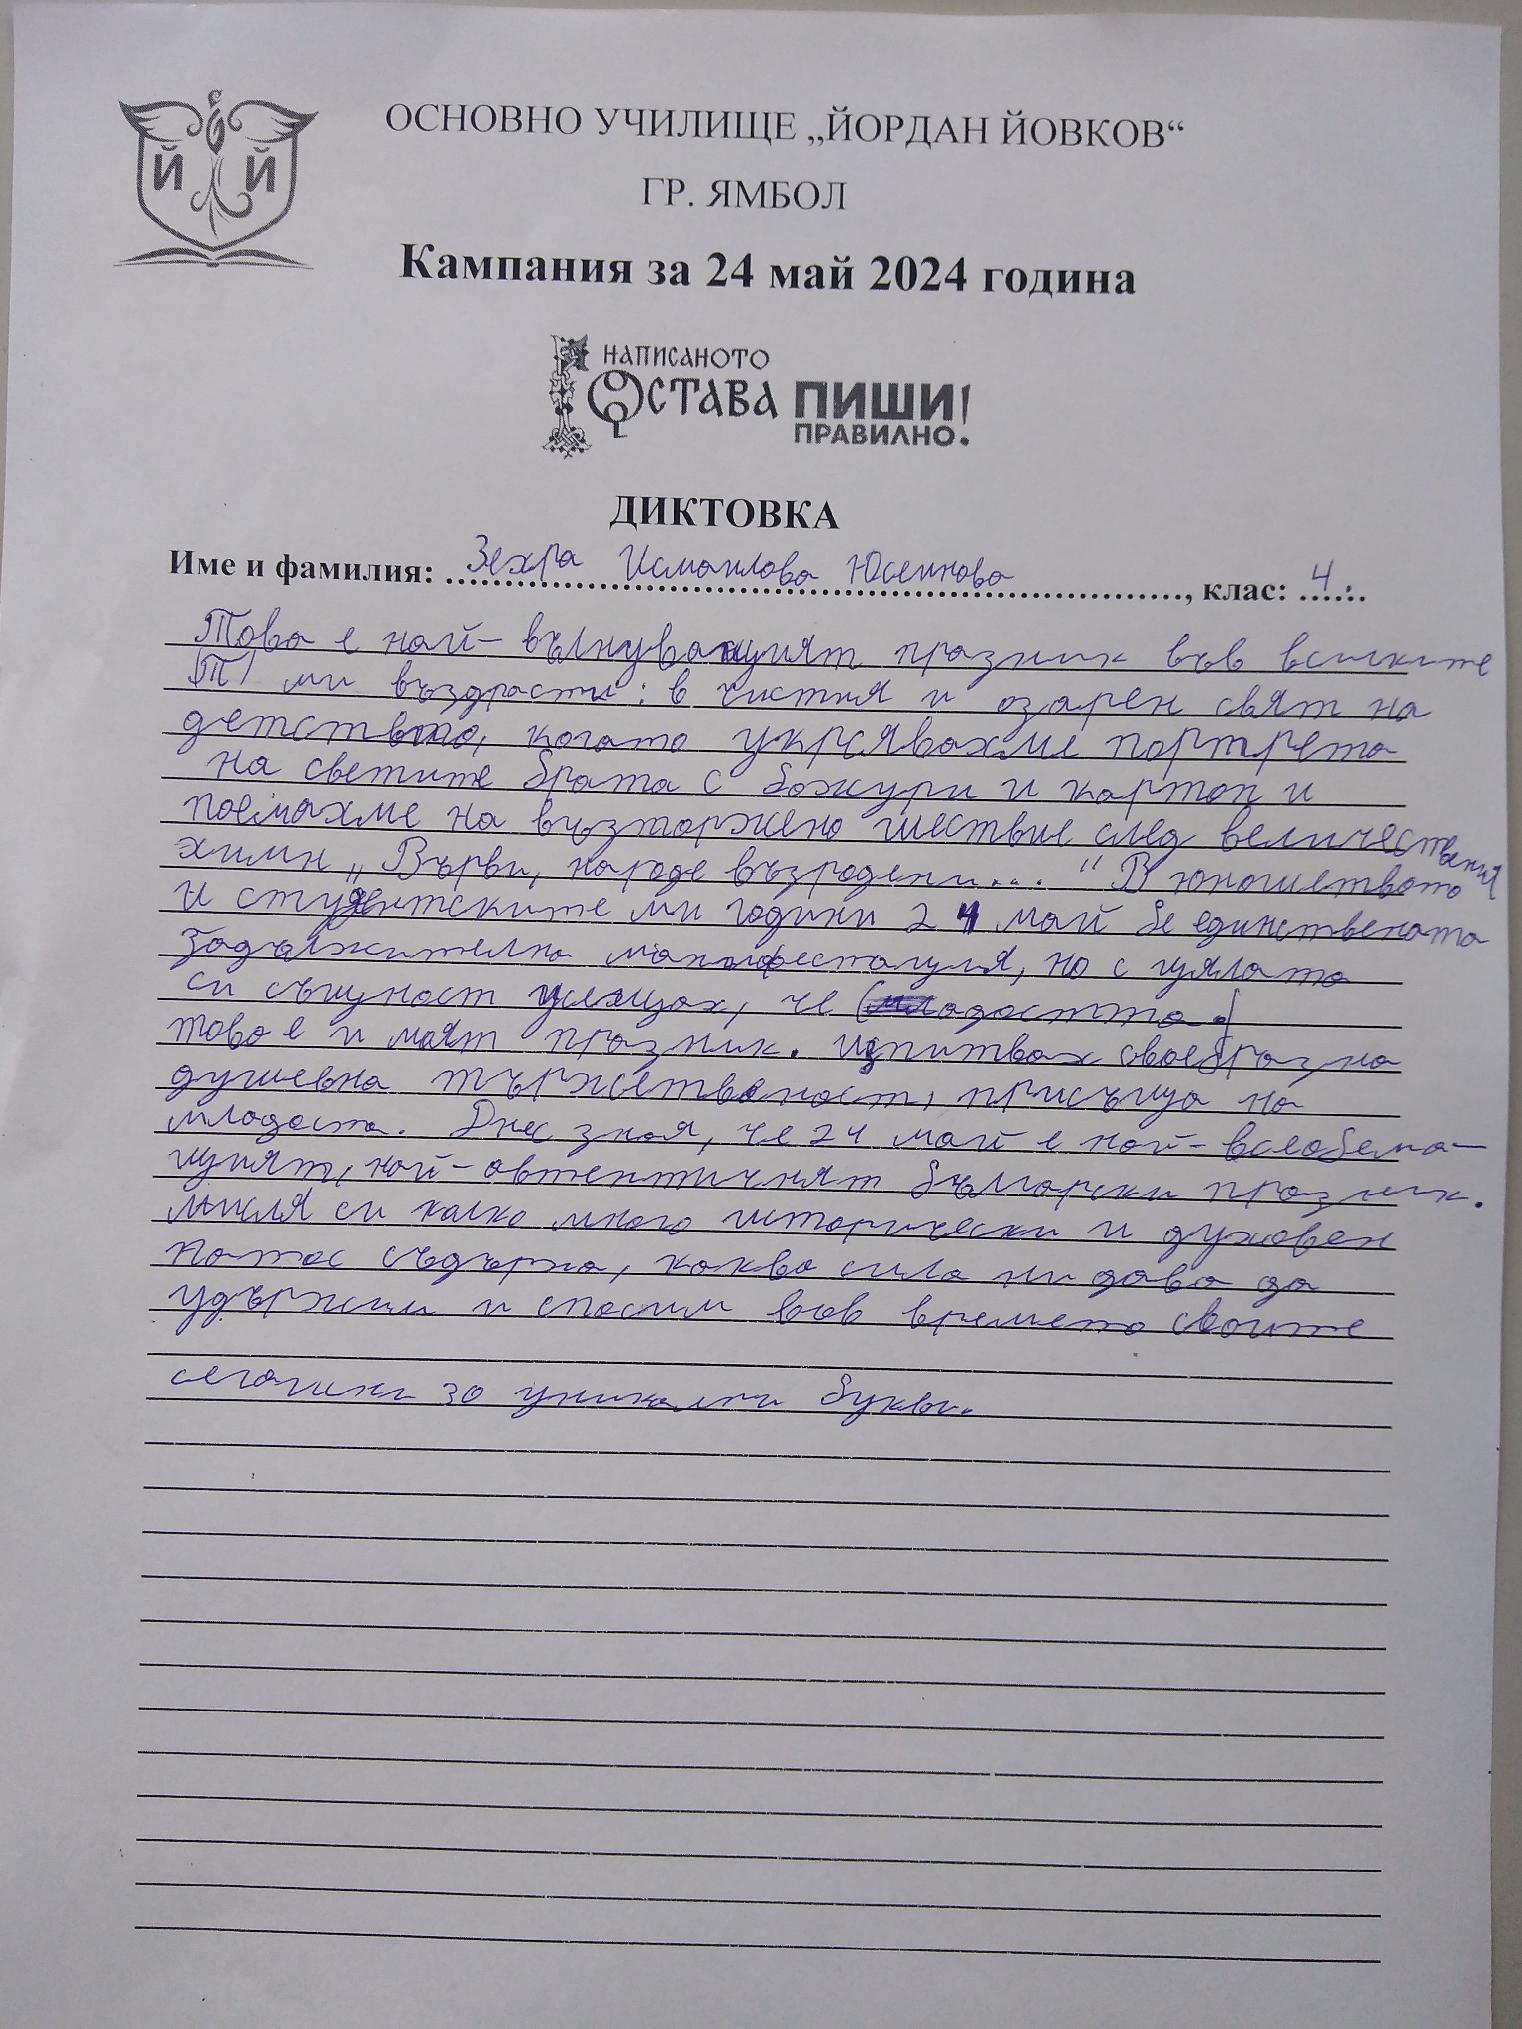 Й Й
ОСНОВНО УЧИЛИЩЕ „ЙОРДАН ЙОВКОВ“
ГР. ЯМБОЛ
Кампания за 24 май 2024 година
НАПИСАНОТО
ОСТАВА ПИШИ!
ПРАВИЛНО.
ДИКТОВКА
Име и фамилия: Зехра Исмаилова Юсеинова, клас: 4
Това е най-вълнуващият празник във всиките
(Т) ми въздрасти: в чистия и озарен свят на
детството, когато укрсявахме портрета
на светите братя с божури и картоп и
поемахме на възторжено шествие след величествения
химн „Върви, народе възродени...“ В юношеството
и студентските ми години 24 май бе единствената
задължителна манифестация, но с цялата
си същност усещах, че (младостта.)
това е и моят празник. изпитвах своебразна
душевна тържественост, присъща на
младоста. Днес зная, че 24 май е най-всеобема-
щият, най-автентичният български празник.
мисля си колко много исторически и духовен
патос съдържа, каква сила ни дава да
удържим и спасим във времето своите
сегашни за уникални букви.